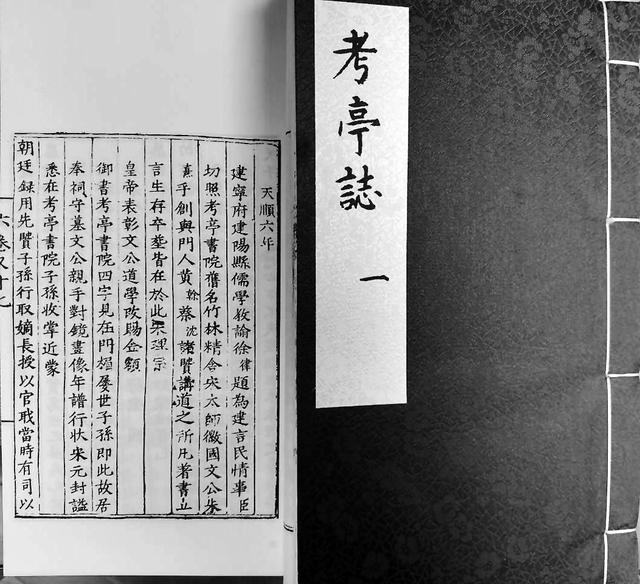 考亭誌
一
天順六年
建寧府建陽縣儒學教諭徐律題為建言民情事臣
切照考亭書院舊名竹林精舍宋太師徽國文公朱
熹手創與門人黃榦蔡沈諸賢講道之所凡著書立
言生存卒塟皆在於此宋理宗
皇帝表彰文公道學改賜金額
御書考亭書院四字見在門楣屡世子孫即此故居
奉祠守墓文公親手對鏡畫像年譜行状宋元封謚
悉在考亭書院子孫收掌近蒙
朝廷録用先賢子孫行取嫡長授以官職當時有司以